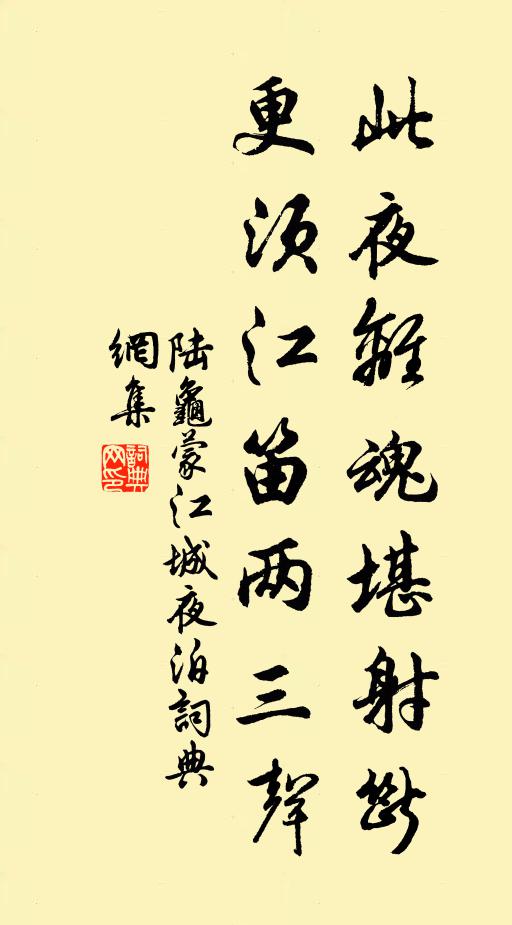 此夜離魂堪射斷
更須江笛两三聲
陆龜蒙江城夜泊詞典
網集
詞典網印